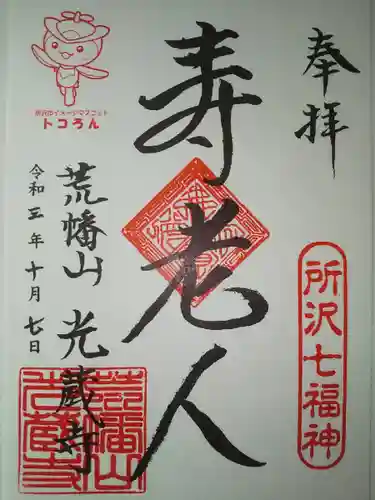 奉拝
所沢七福神
寿老人
荒幡山 光蔵寺
令和三年十月七日
所沢市イメージマスコット
トコろん
荒幡山
光蔵寺